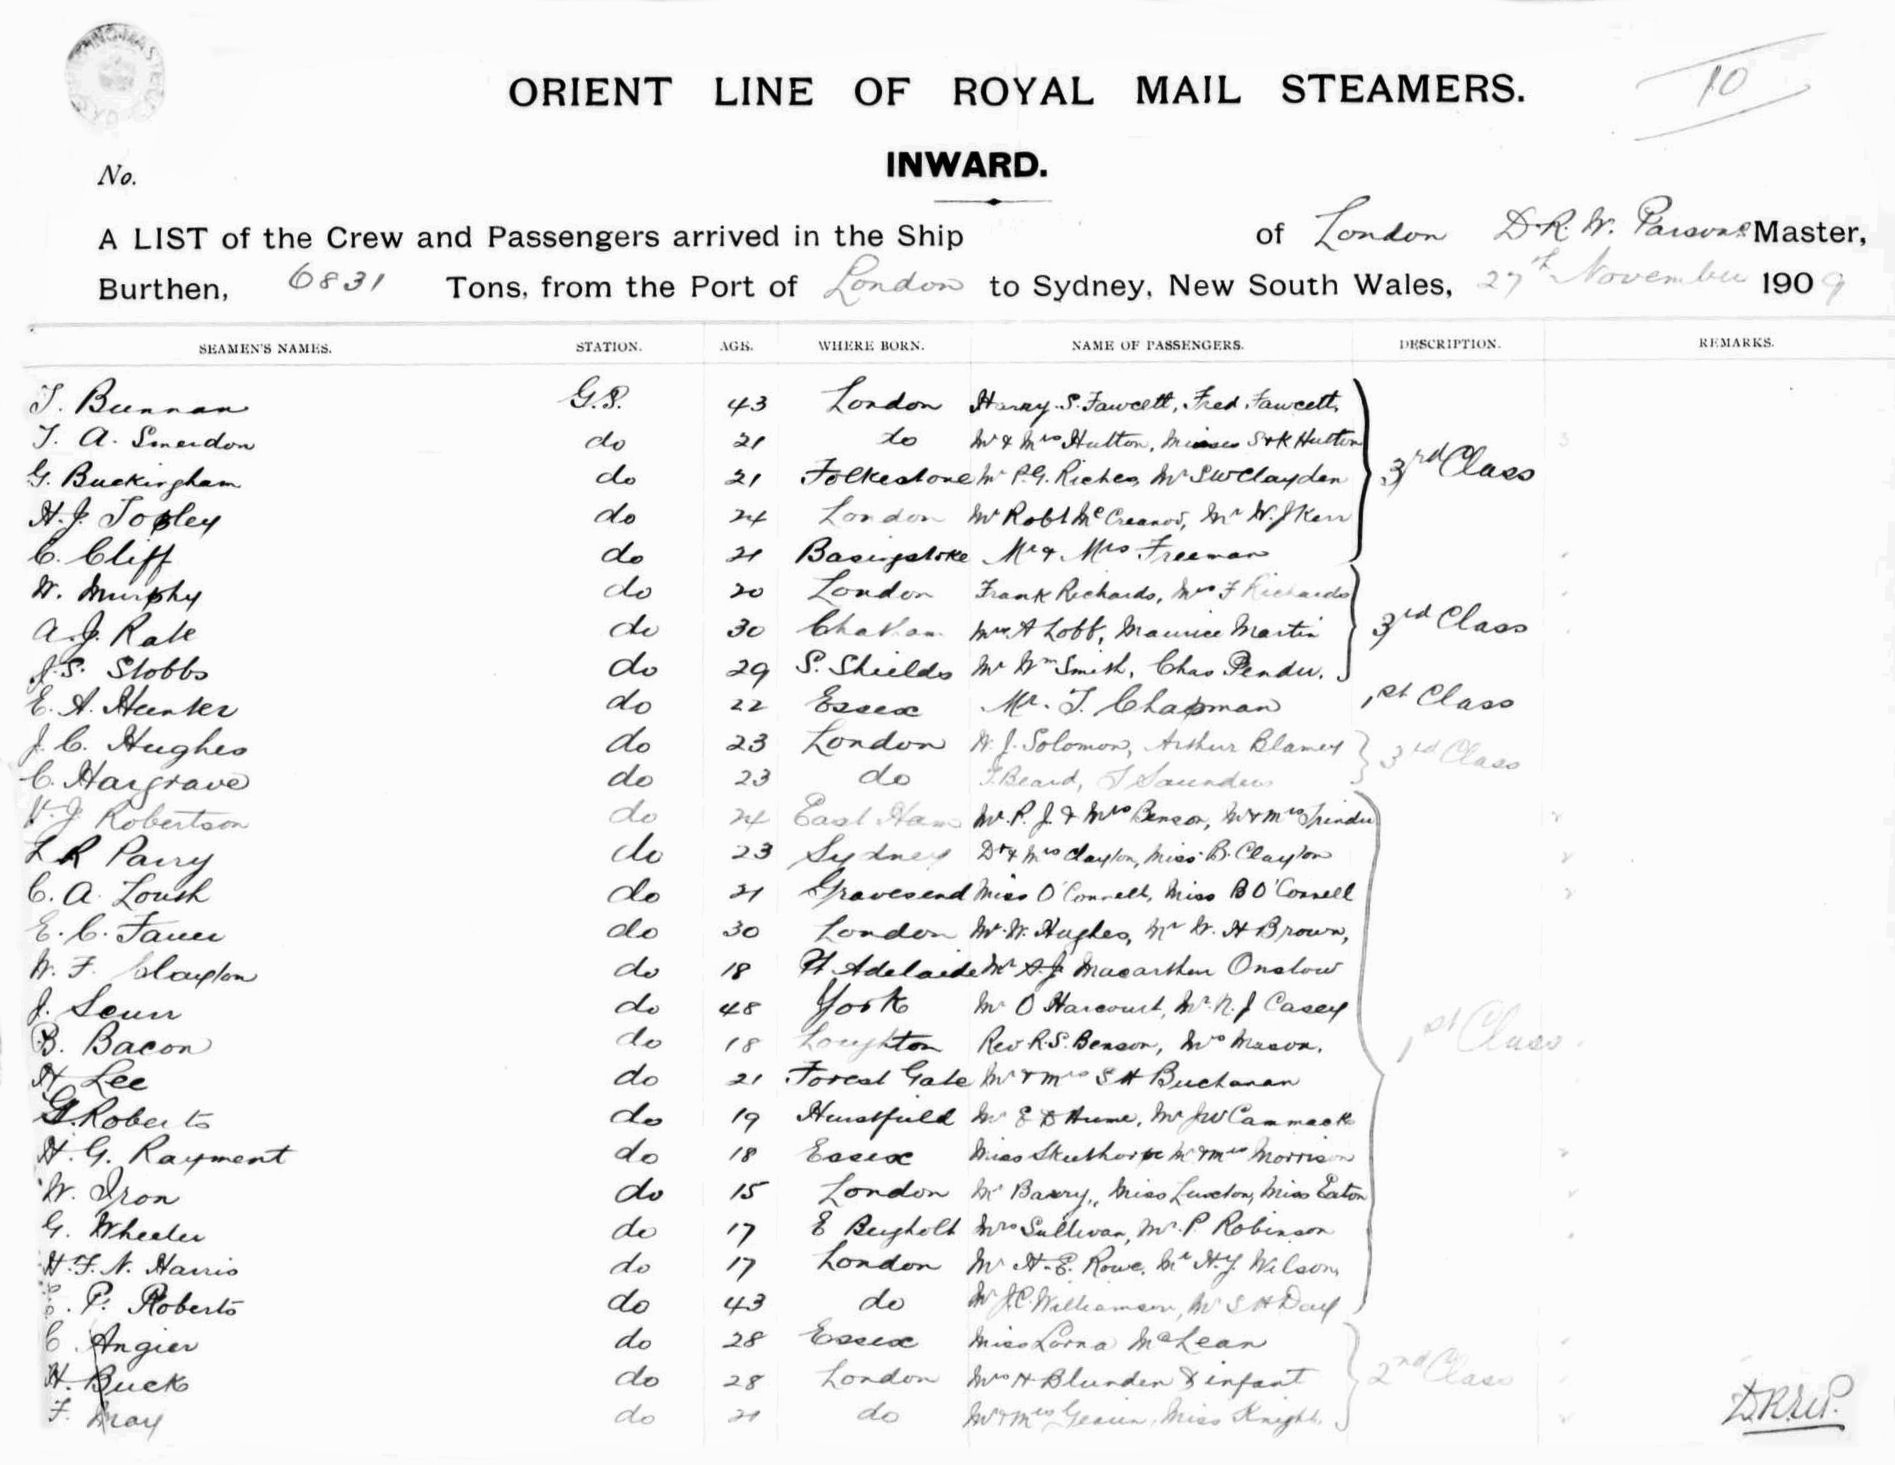 10
ORIENT LINE OF ROYAL MAIL STEAMERS.
INWARD.
No.
A LIST of the Crew and Passengers arrived in the Ship of London D.R.W. Parsons Master,
Burthen, 6831 Tons, from the Port of London to Sydney, New South Wales, 27th November 1909
SEAMEN'S NAMES. STATION. AGE. WHERE BORN. NAME OF PASSENGERS. DESCRIPTION. REMARKS.
T. Bunnan G.S. 43 London Harry S. Fawcett, Fred Fawcett,
T. A. Smerdon do 21 do Mr & Mrs Hutton, Misses S & K Hutton
G. Buckingham do 21 Folkestone Mr P.G. Riches, Mr S W Clayden 3rd Class
H. J. Topley do 24 London Mr Robt Mr W. J Kerr
C. Cliff do 21 Basingstoke Mr & Mrs Freeman
W. Murphy do 20 London Frank Richards, Mrs F Richards
A. J. Rate do 30 Chatham A Lobb, Maurice Martin 3rd Class
J. S. Stobbs do 29 S. Shields Mr Wm Smith, Chas
E. A. Hunter do 22 Essex Mr. T. Chapman 1st Class
J. C. Hughes do 23 London H. J. Solomon, Arthur Blamey 3rd Class
C. Hargrave do 23 do T. Beard, T Saunders
J. Robertson do 24 East Ham Mr. P. J. & Mrs Benson, Mr & Mrs
L R Parry do 23 Sydney Dr & Mrs Clayton, Miss B. Clayton
C. A. Loush do 21 Gravesend Miss O'Connell, Miss B O'Connell
E. C. do 30 London Mr. W. Hughes, Mr W. H Brown,
W. F. Clayton do 18 Pt Adelaide Mr A. J. Macarthur Onslow
J. Scurr do 48 York Mr O Harcourt, Mr. N. J Casey 1st Class
B. Bacon do 18 Loughton Rev R. S. Benson, Mrs Mason.
H Lee do 21 Forest Gate Mr & Mrs S H Buchanan
G. Roberts do 19 Hurstfield Mr E D Hume, Mr J W Cammack
H. G. Rayment do 18 Essex Miss Skuthorpe Mr & Mrs Morrison
W. Iron do 15 London Mr Barry, Miss Luxton, Miss Eaton
G. Wheeler do 17 E Bergholt Mrs Sullivan, Mr. P Robinson
H. F. N. Harris do 17 London Mr H. E. Rowe, Mr H. J. Wilson,
P. Roberts do 43 do Mr J. C. Williamson, Mr S H Day
C Angier do 28 Essex Miss Lorna McLean
H. Buck do 28 London Mrs H Blunden & infant 2nd Class
F. May do 21 do Mr & Mrs Miss Knight.
D.R.W.P.